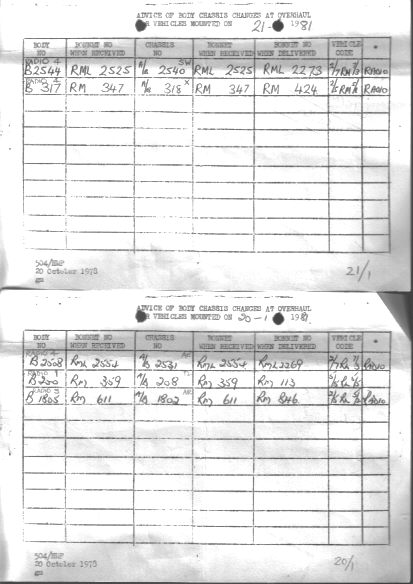 ADVICE OF BODY CHASSIS CHANGES AT OVERHAUL
R VEHICLES MOUNTED ON 21- 1981
BODY NO BONNET NO WHEN RECEIVED CHASSIS NO BONNET WHEN RECEIVED BONNET NO WHEN DELIVERED VEHICLE CODE *
RADIO 4 SW
B2544 RML 2525 A/B 2540 RML 2525 RML 2273 RADIO
RADIO X
B 317 RM 347 A/B 318 RM 347 RM 424 RADIO
504/EMP
20 October 1978
21/1
ADVICE OF BODY CHASSIS CHANGES AT OVERHAUL
R VEHICLES MOUNTED ON 20-1 1981
BODY NO BONNET NO WHEN RECEIVED CHASSIS NO BONNET WHEN RECEIVED BONNET NO WHEN DELIVERED VEHICLE CODE *
RADIO 4
B2558 RML 2554 A/B 2531 RML 2554 RML2269 RADIO
RADIO 1
B 250 RM 359 A/B 208 RM 359 RM 113 RADIO
RADIO
B 1805 RM 611 A/B 1802 RM 611 RM 846 RADIO
504/EMP
20 October 1978
20/1